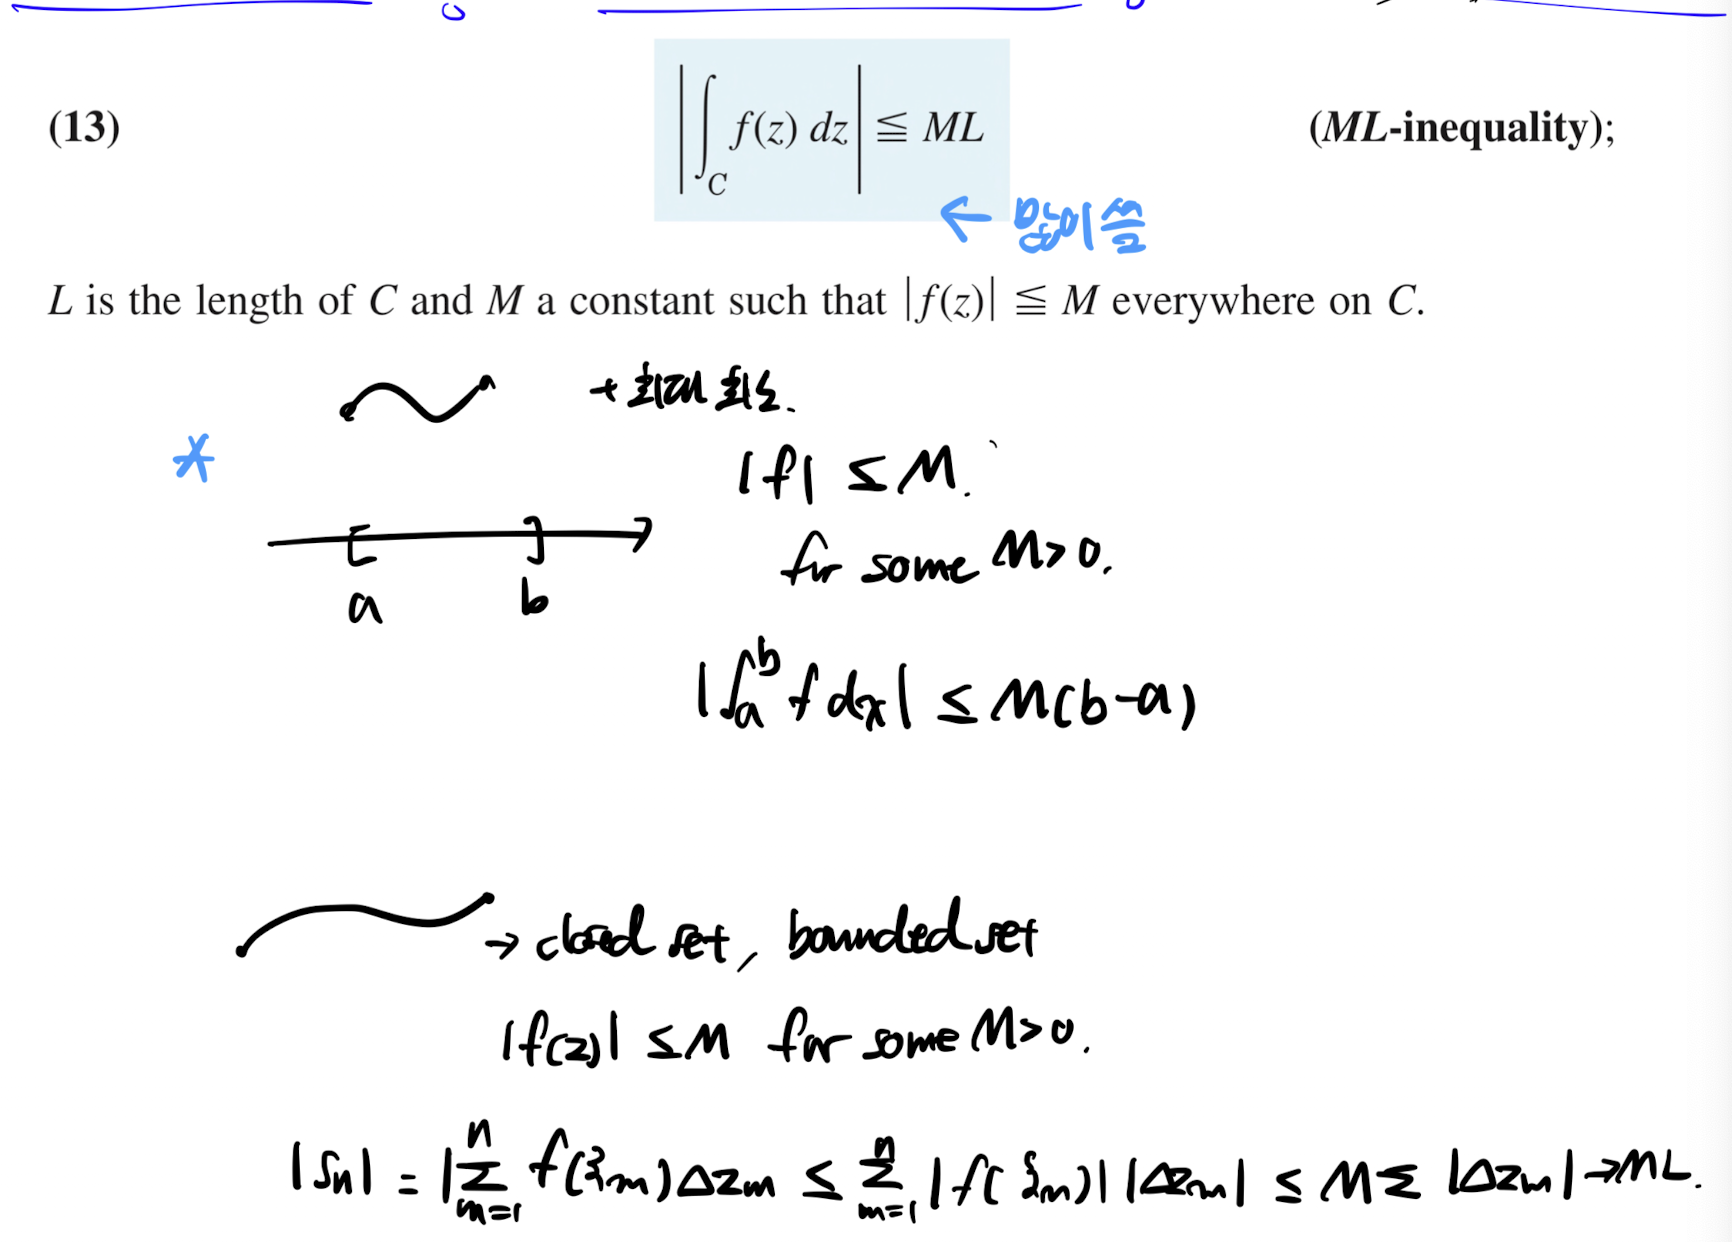 (13) |∫_C f(z) dz| ≦ ML (ML-inequality);
← 많이 씀
L is the length of C and M a constant such that |f(z)| ≦ M everywhere on C.
→ 최대 최소.
* |f| ≤ M.
for some M>0.
a b
|∫_a^b f dx| ≤ M(b-a)
→ closed set, bounded set
|f(z)| ≤ M for some M>0.
|Sn| = |Σ_{m=1}^{n} f(ξm)Δzm ≤ Σ_{m=1}^{n} |f(ξm)| |Δzm| ≤ M Σ |Δzm| → ML.